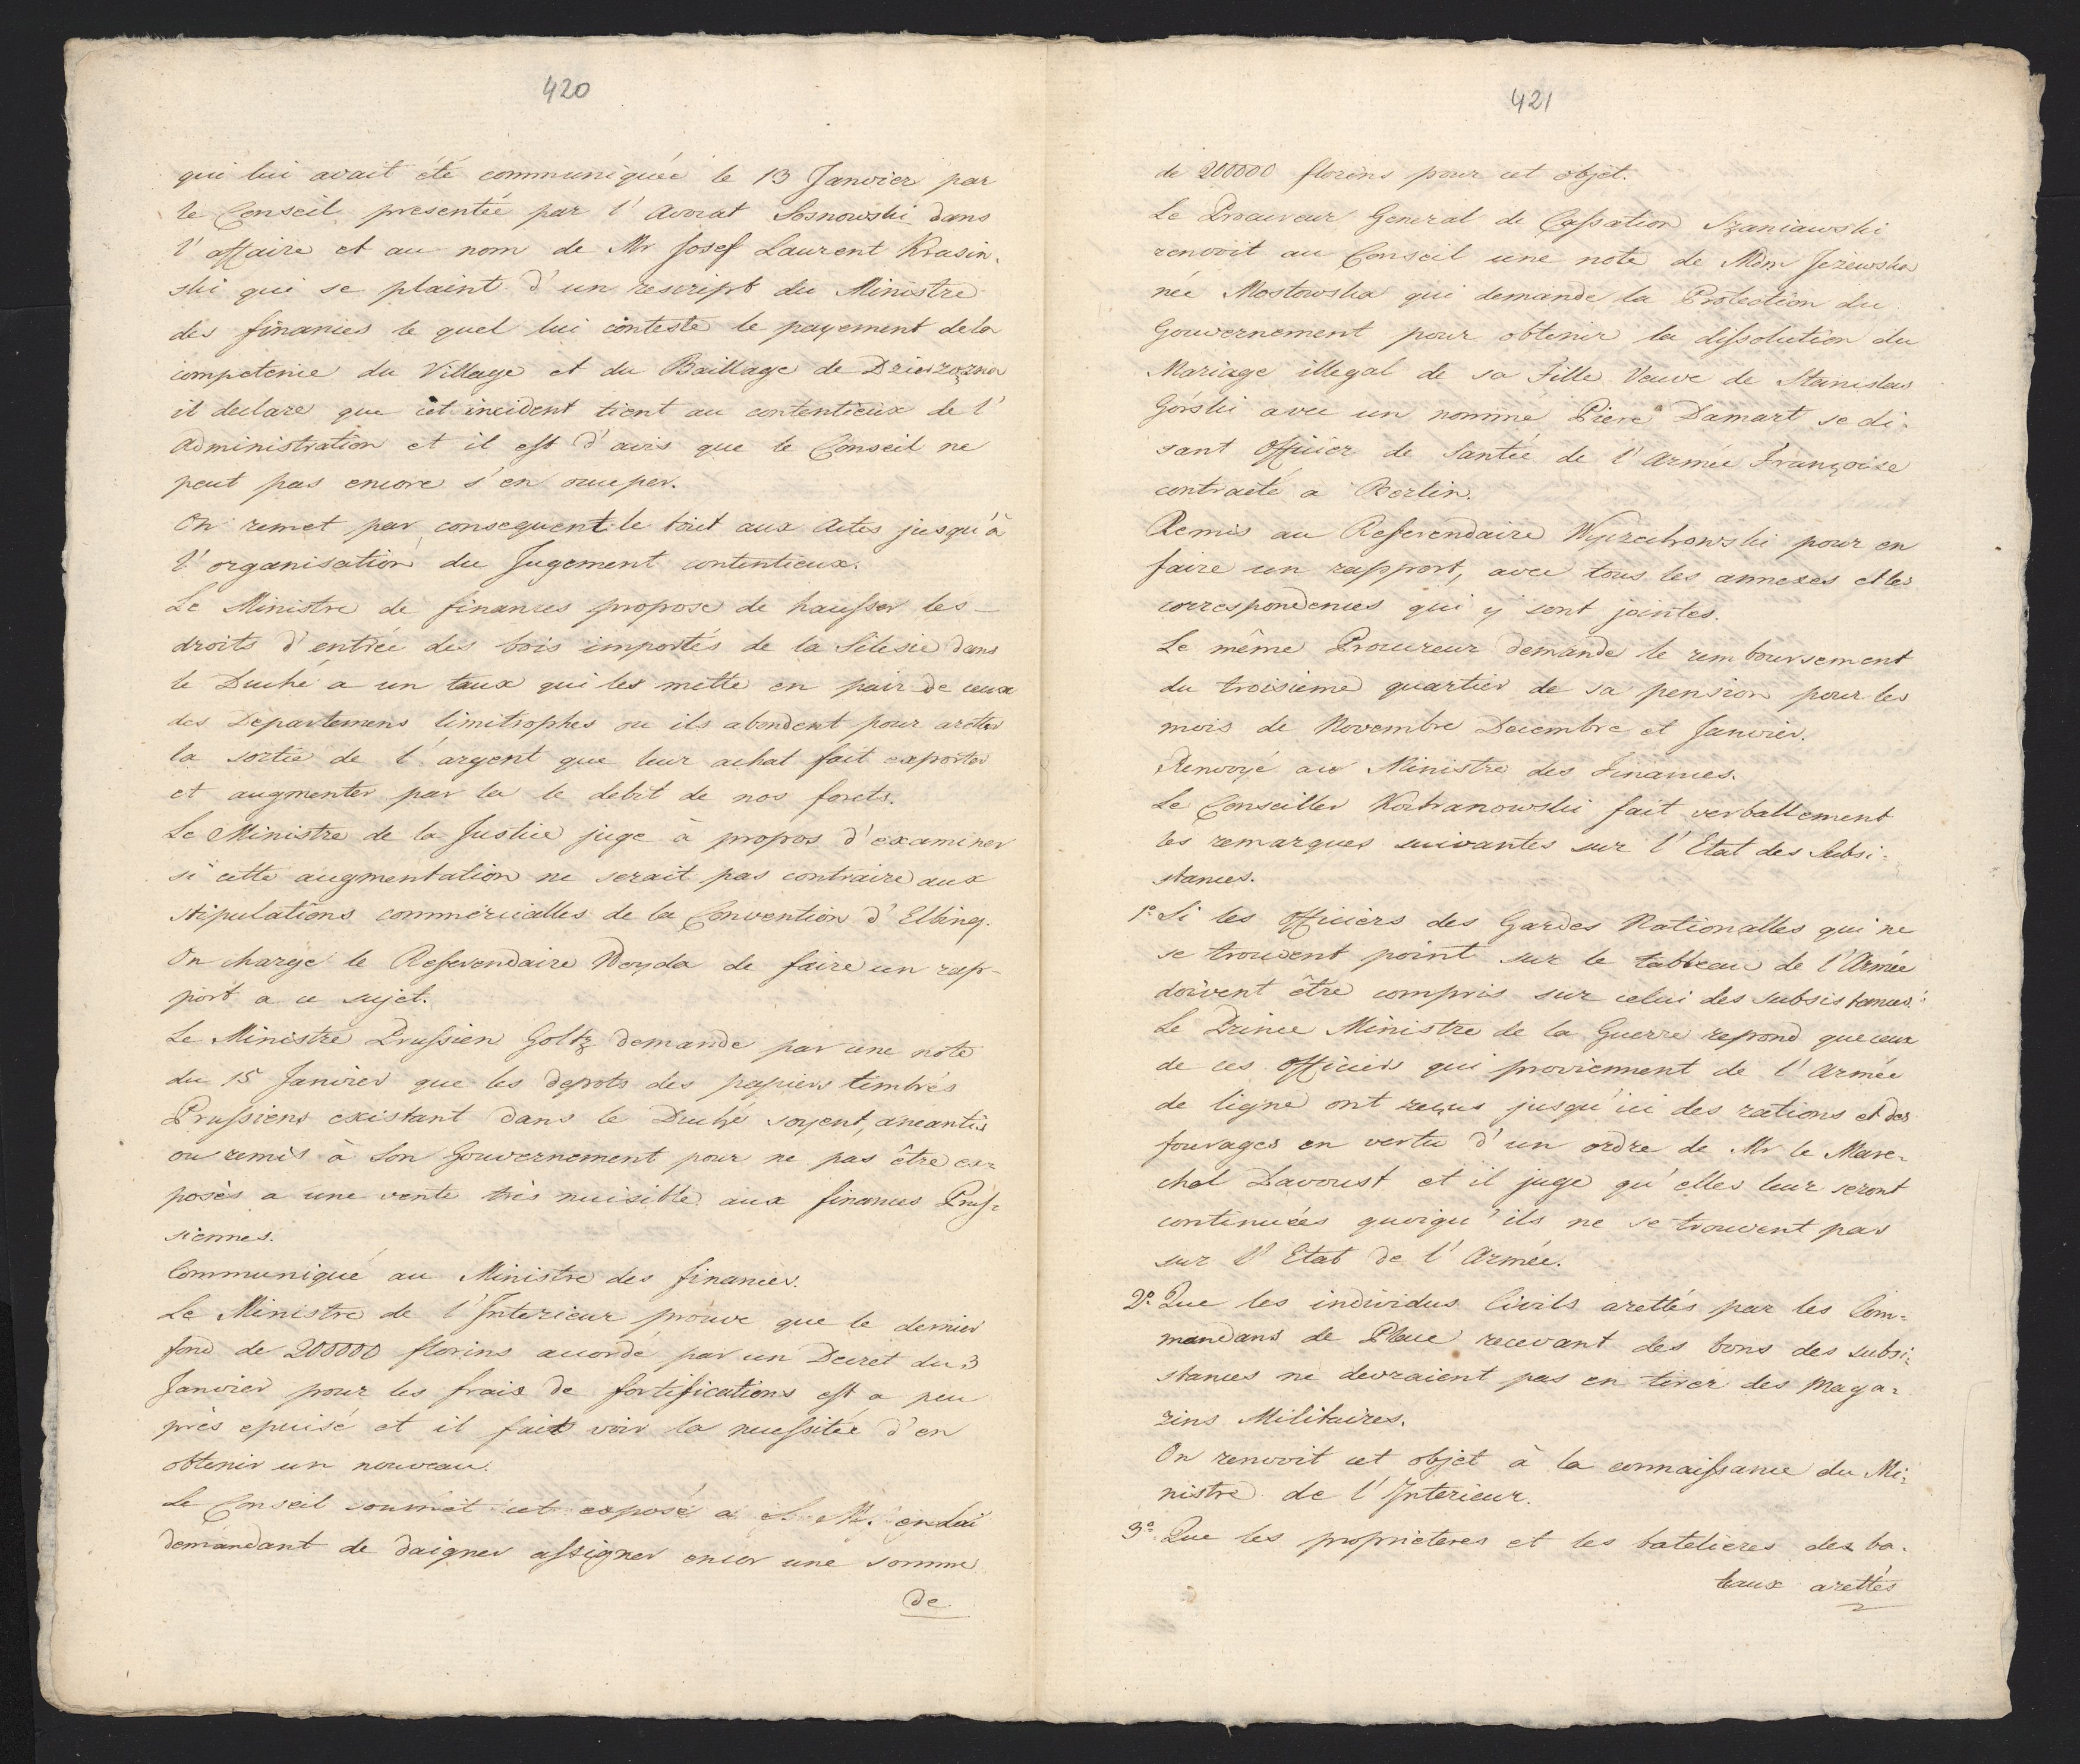 420
qui lui avait été communiquée le 13 Janvier par
le Conseil presentée par l'Avocat Sosnowski dans
l'affaire et au nom de Mr Josef Laurent Krasin-
ski qui se plaint d'un rescript du Ministre
des finances le quel lui conteste le payement dela
competence du Village et du Baillage de
il declare que cet incident tient au contentieux de l'
administration et il est d'avis que le Conseil ne
peut pas encore s'en occuper.
On remet par consequent le tout aux Actes jusqu'à
l'organisation du Jugement contentieux.
Le Ministre de finances propose de hausser les
droits d'entrée des bois importés de la Silesie dans
le Duché a un taux qui les mette en pair de ceux
des Departemens limitrophes ou ils abondent pour aretter
la sortie de l'argent que leur achat fait exporter
et augmenter par la le debit de nos forets.
Le Ministre de la Justice juge à propos d'examiner
si cette augmentation ne serait pas contraire aux
stipulations commercialles de la Convention d'Elbing.
On charge le Referendaire Woyda de faire un rap-
port a ce sujet.
Le Ministre Prussien Goltz demande par une note
du 15 Janvier que les depots des papiers timbrés
Prussiens existant dans le Duché soyent aneantis
ou remis à Son Gouvernement pour ne pas être ex=
posés a une vente très nuisible aux finances Prus=
siennes.
Communiqué au Ministre des finances.
Le Ministre de l'Interieur prouve que le dernier
fond de 200000 florins accordé par un Decret du 3
Janvier pour les frais de fortifications est a peu
près epuisé et il fait voir la necessitée d'en
obtenir un nouveau.
Le Conseil soumet cet exposé a S. M. en lui
demandant de daigner assigner encor une somme
de
421
de 200000 florins pour cet objet.
Le Procureur General de Cassation Szaniawski
renvoit au Conseil une note de Mdm Jezewska
née Mostowska qui demande la Protection du
Gouvernement pour obtenir la dissolution du
Mariage illegal de sa Fille Veuve de Stanislas
Górski avec un nommé Piere Damart se di-
sant Officier de Santée de l'Armée Françoise
contracté a Berlin.
Remis au Referendaire Wyczechowski pour en
faire un rapport, avec tous les annexes et les
correspondences qui y sont jointes.
Le même Procureur demande le remboursement
du troisieme quartier de sa pension pour les
mois de Novembre Decembre et Janvier.
Renvoyé au Ministre des Finances.
Le Conseiller Kochanowski fait verballement
les remarques suivantes sur l'Etat des Subsi=
stances.
1º Si les Officiers des Gardes Nationalles qui ne
se trouvent point sur le tableau de l'Armée
doivent être compris sur celui des subsistences:
Le Prince Ministre de la Guerre repond que ceux
de ces Officiers qui proviennent de l'Armée
de ligne ont reçus jusqu'ici des rations et des
fourages en vertu d'un ordre de Mr le Mare-
chal Davoust et il juge qu'elles leur seront
continuées quoiqu'ils ne se trouvent pas
sur l'Etat de l'Armée.
2º Que les individus Civils arettés par les Com=
mandans de Place recevant des bons des subsi=
stances ne devraient pas en tirer des Maga=
zins Militaires.
On renvoit cet objet à la connaissance du Mi=
nistre de l'Interieur.
3º Que les proprieteres et les batelieres des ba-
teaux arettés